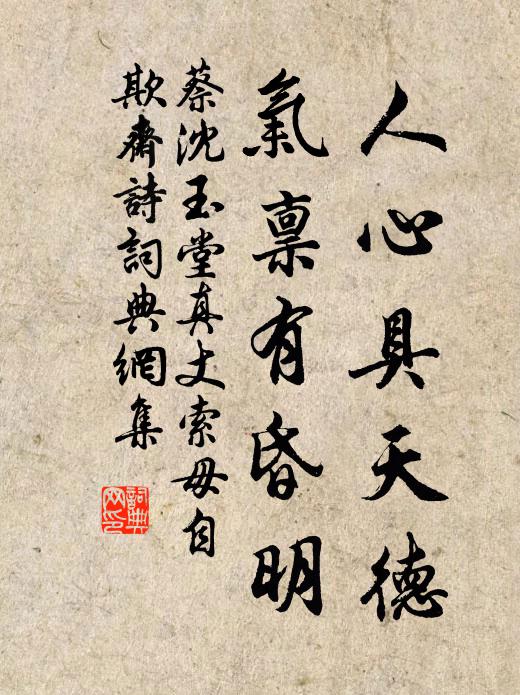 人心具天德
氣禀有昏明
蔡沈玉堂真丈索毋自
欺齋詩詞典網集
詞典
网印